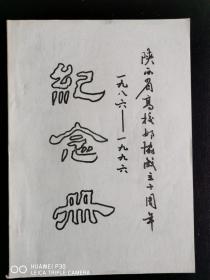 陕西省高校邮协成立十周年
一九八六——一九九六
紀念册
HUAWEI P30
LEICA TRIPLE CAMERA